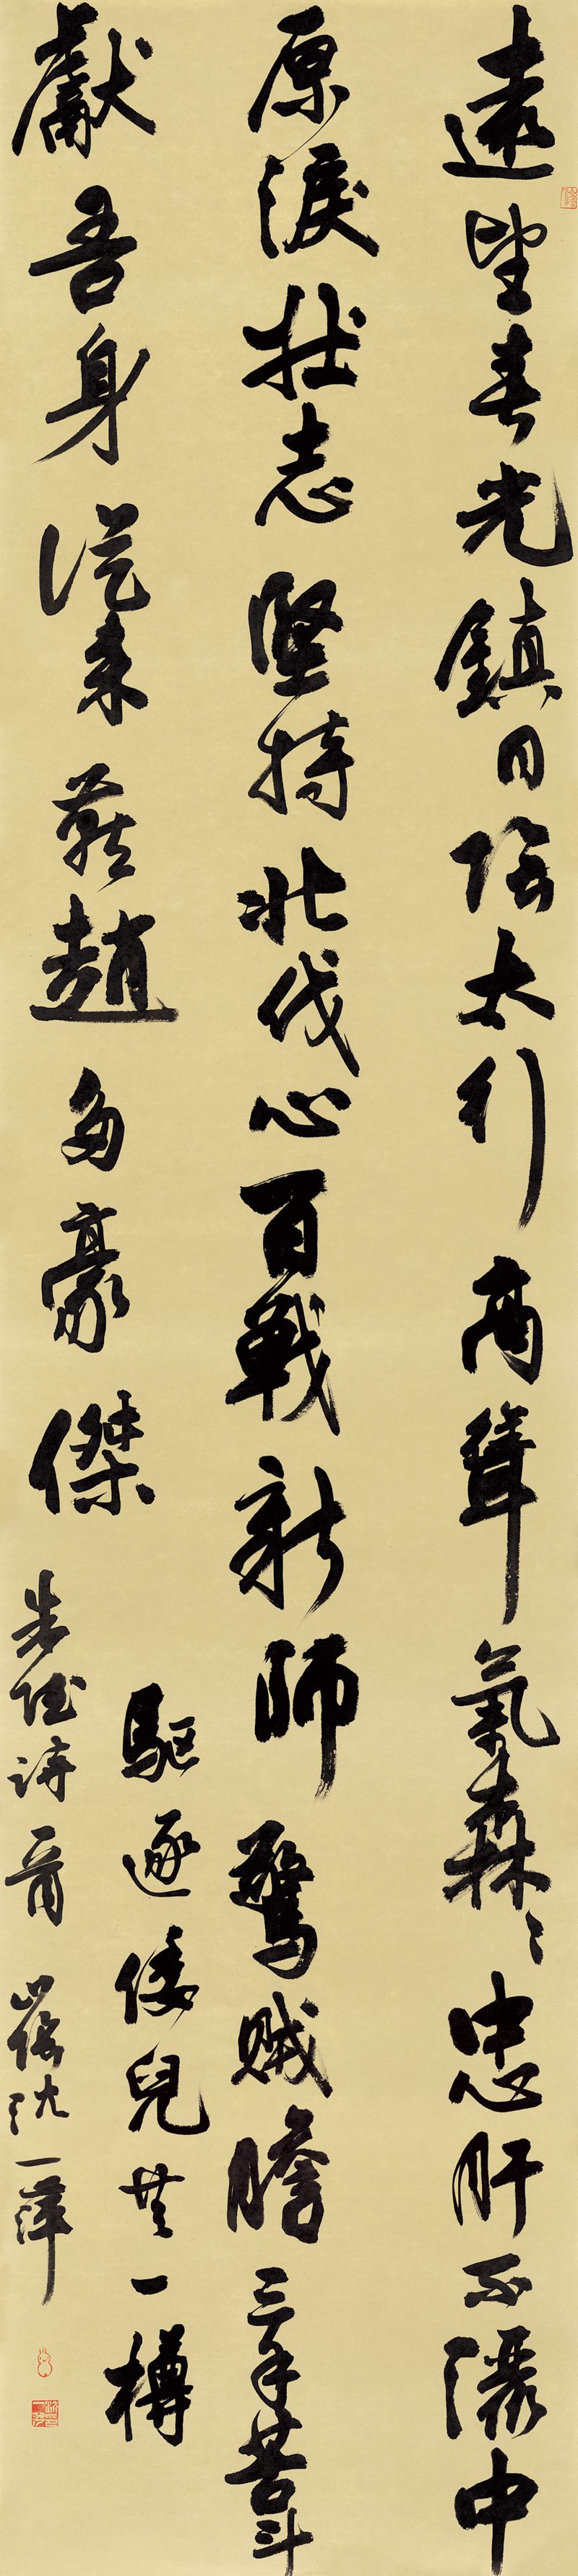 遠望春光鎮日陰太行高聳氣森〻忠肝不灑中
原淚壯志堅持北伐心百戰新師驚賊膽三年苦斗
獻吾身從來燕趙多豪傑驅逐倭兒共一樽
朱德詩 沈一萍